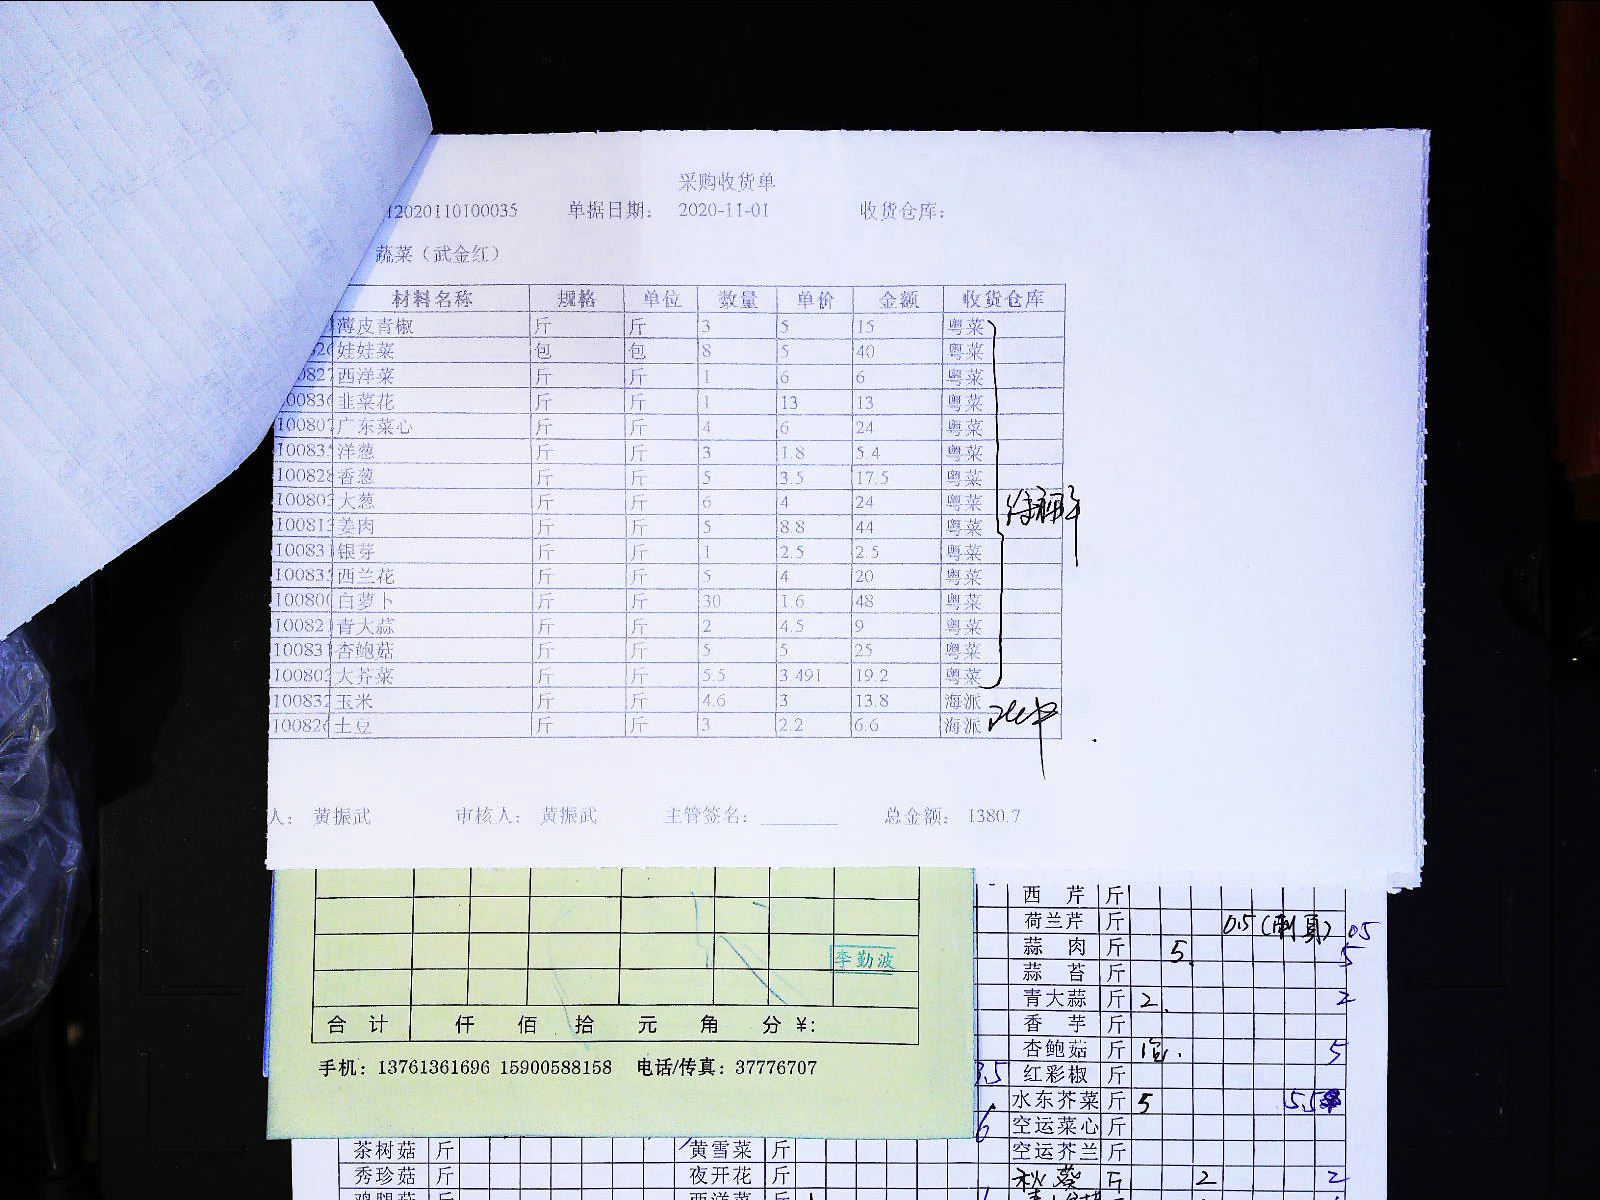 采购收货单
12020110100035 单据日期： 2020-11-01 收货仓库：
蔬菜（武金红）
材料名称 规格 单位 数量 单价 金额 收货仓库
薄皮青椒 斤 斤 3 5 15 粤菜
娃娃菜 包 包 8 5 40 粤菜
0827 西洋菜 斤 斤 1 6 6 粤菜
00836 韭菜花 斤 斤 1 13 13 粤菜
100807 广东菜心 斤 斤 4 6 24 粤菜
10083 洋葱 斤 斤 3 1.8 5.4 粤菜
100828 香葱 斤 斤 5 3.5 17.5 粤菜
10080 大葱 斤 斤 6 4 24 粤菜
100813 姜肉 斤 斤 5 8.8 44 粤菜
10083 银芽 斤 斤 1 2.5 2.5 粤菜
10083 西兰花 斤 斤 5 4 20 粤菜
100800 白萝卜 斤 斤 30 1.6 48 粤菜
10082 青大蒜 斤 斤 2 4.5 9 粤菜
10083 杏鲍菇 斤 斤 5 5 25 粤菜
10080 大芥菜 斤 斤 5.5 3.491 19.2 粤菜
100832 玉米 斤 斤 4.6 3 13.8 海派
100826 土豆 斤 斤 3 2.2 6.6 海派
人： 黄振武 审核人： 黄振武 主管签名： 总金额： 1380.7
李勤波
合计 仟 佰 拾 元 角 分 ¥:
手机：13761361696 15900588158 电话/传真：37776707
西芹 斤
荷兰芹 斤 0.5 0.5
蒜肉 斤 5 5
蒜苔 斤
青大蒜 斤 2 2
香芋 斤
杏鲍菇 斤 5
红彩椒 斤
水东芥菜 斤 5 5.5
空运菜心 斤
空运芥兰 斤
茶树菇 斤 黄雪菜 斤
秀珍菇 斤 夜开花 斤 秋葵 斤 2 2
鸡腿菇 斤 西洋菜 斤